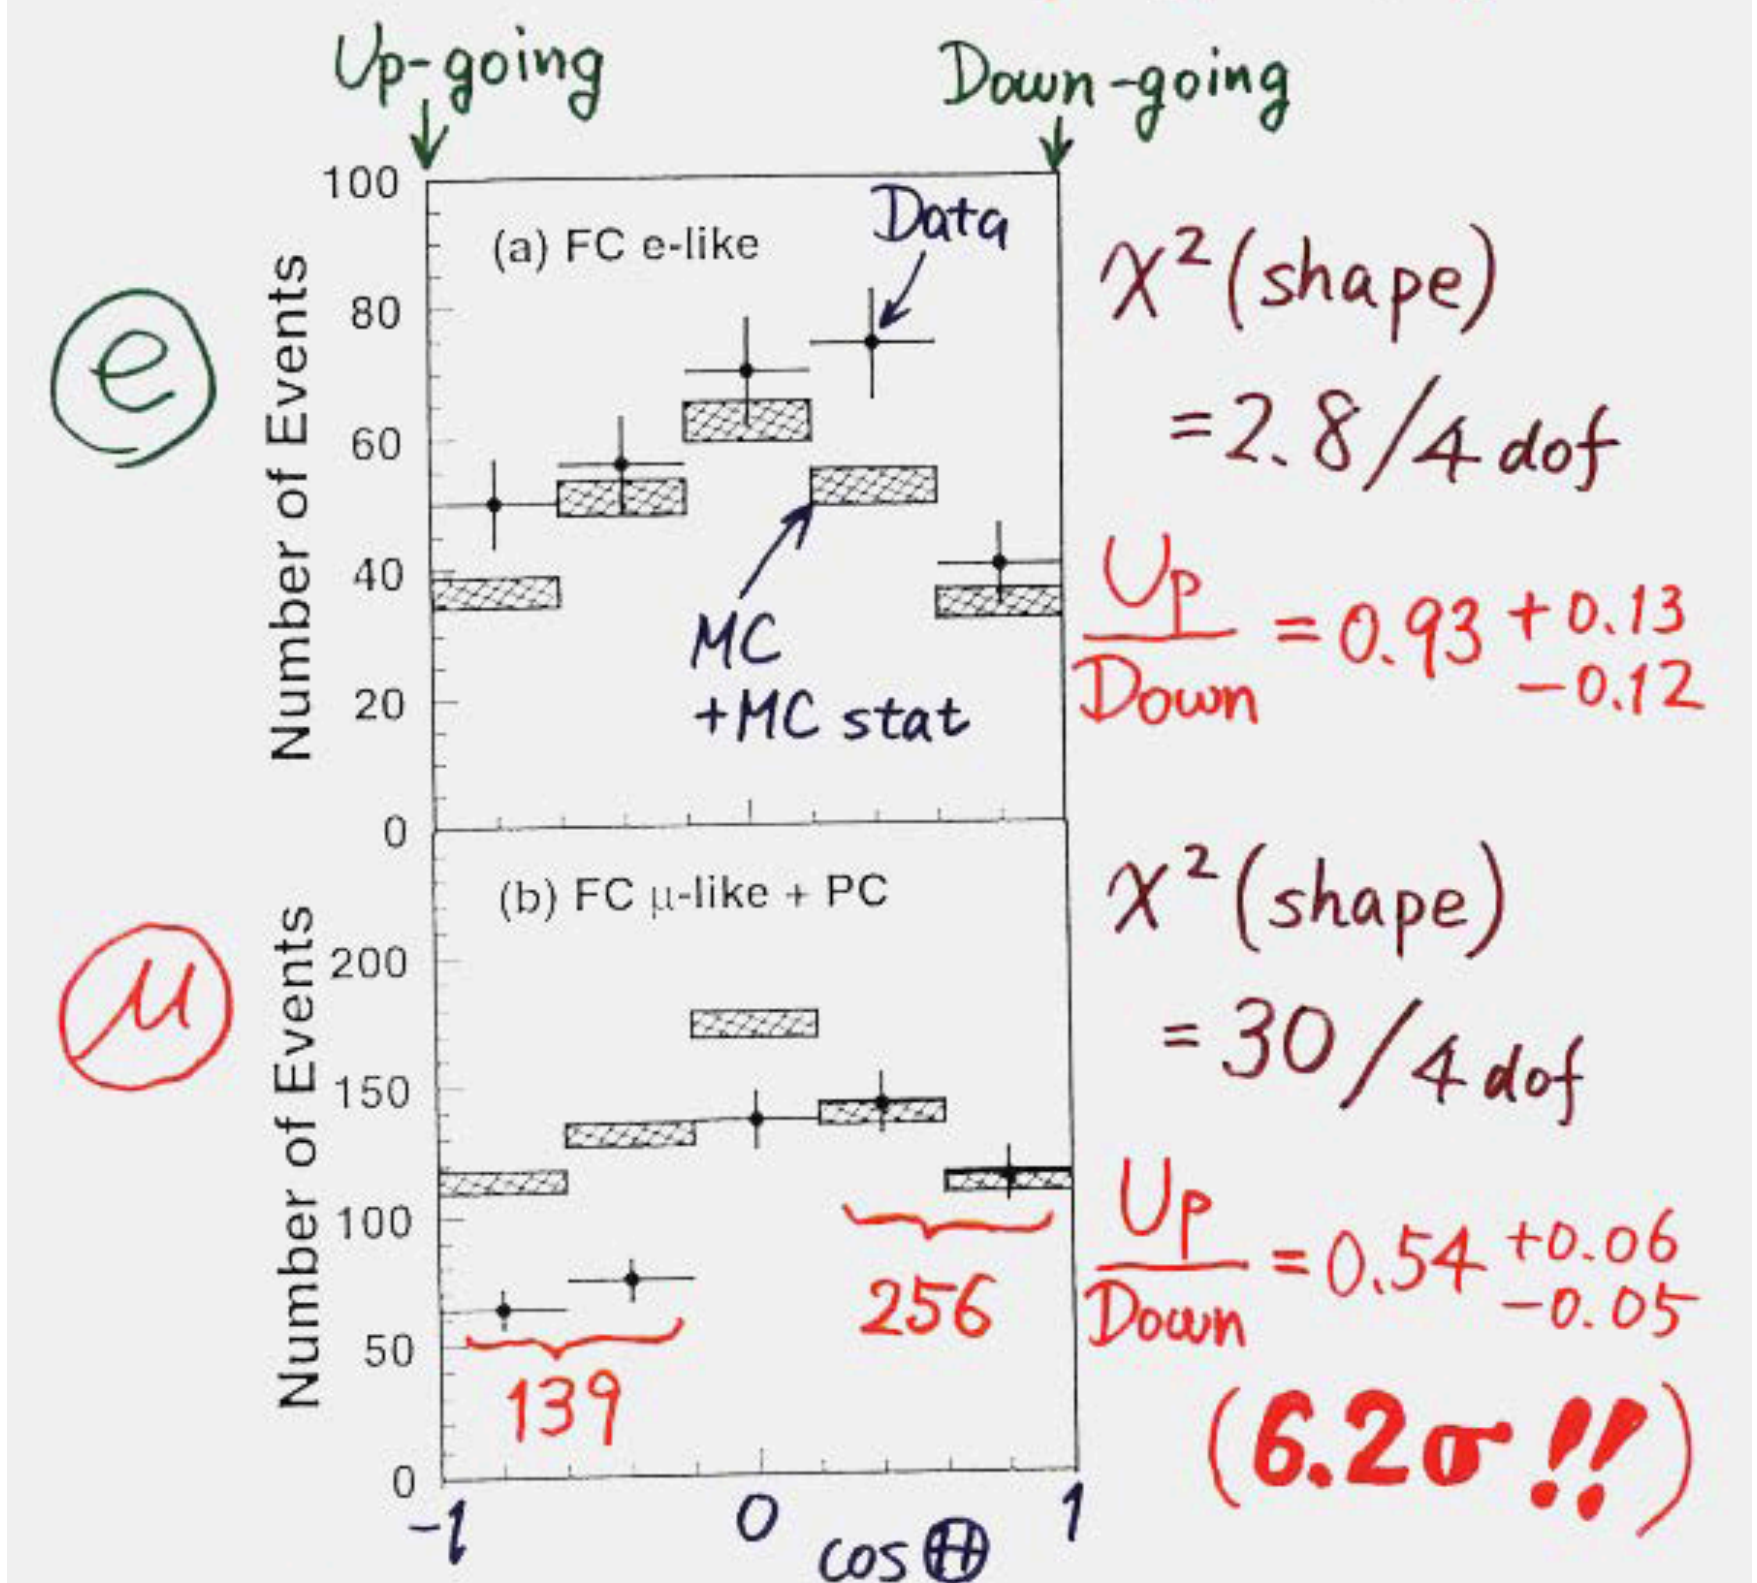 Up-going
Down-going
100
80
60
40
20
0
Number of Events
(a) FC e-like
Data
MC
+MC stat
e
χ² (shape)
= 2.8 / 4 dof
Up
Down
= 0.93 + 0.13
− 0.12
200
150
100
50
0
Number of Events
(b) FC μ-like + PC
139
256
μ
χ² (shape)
= 30 / 4 dof
Up
Down
= 0.54 +0.06
−0.05
(6.2σ !!)
-1
0
1
cos Θ